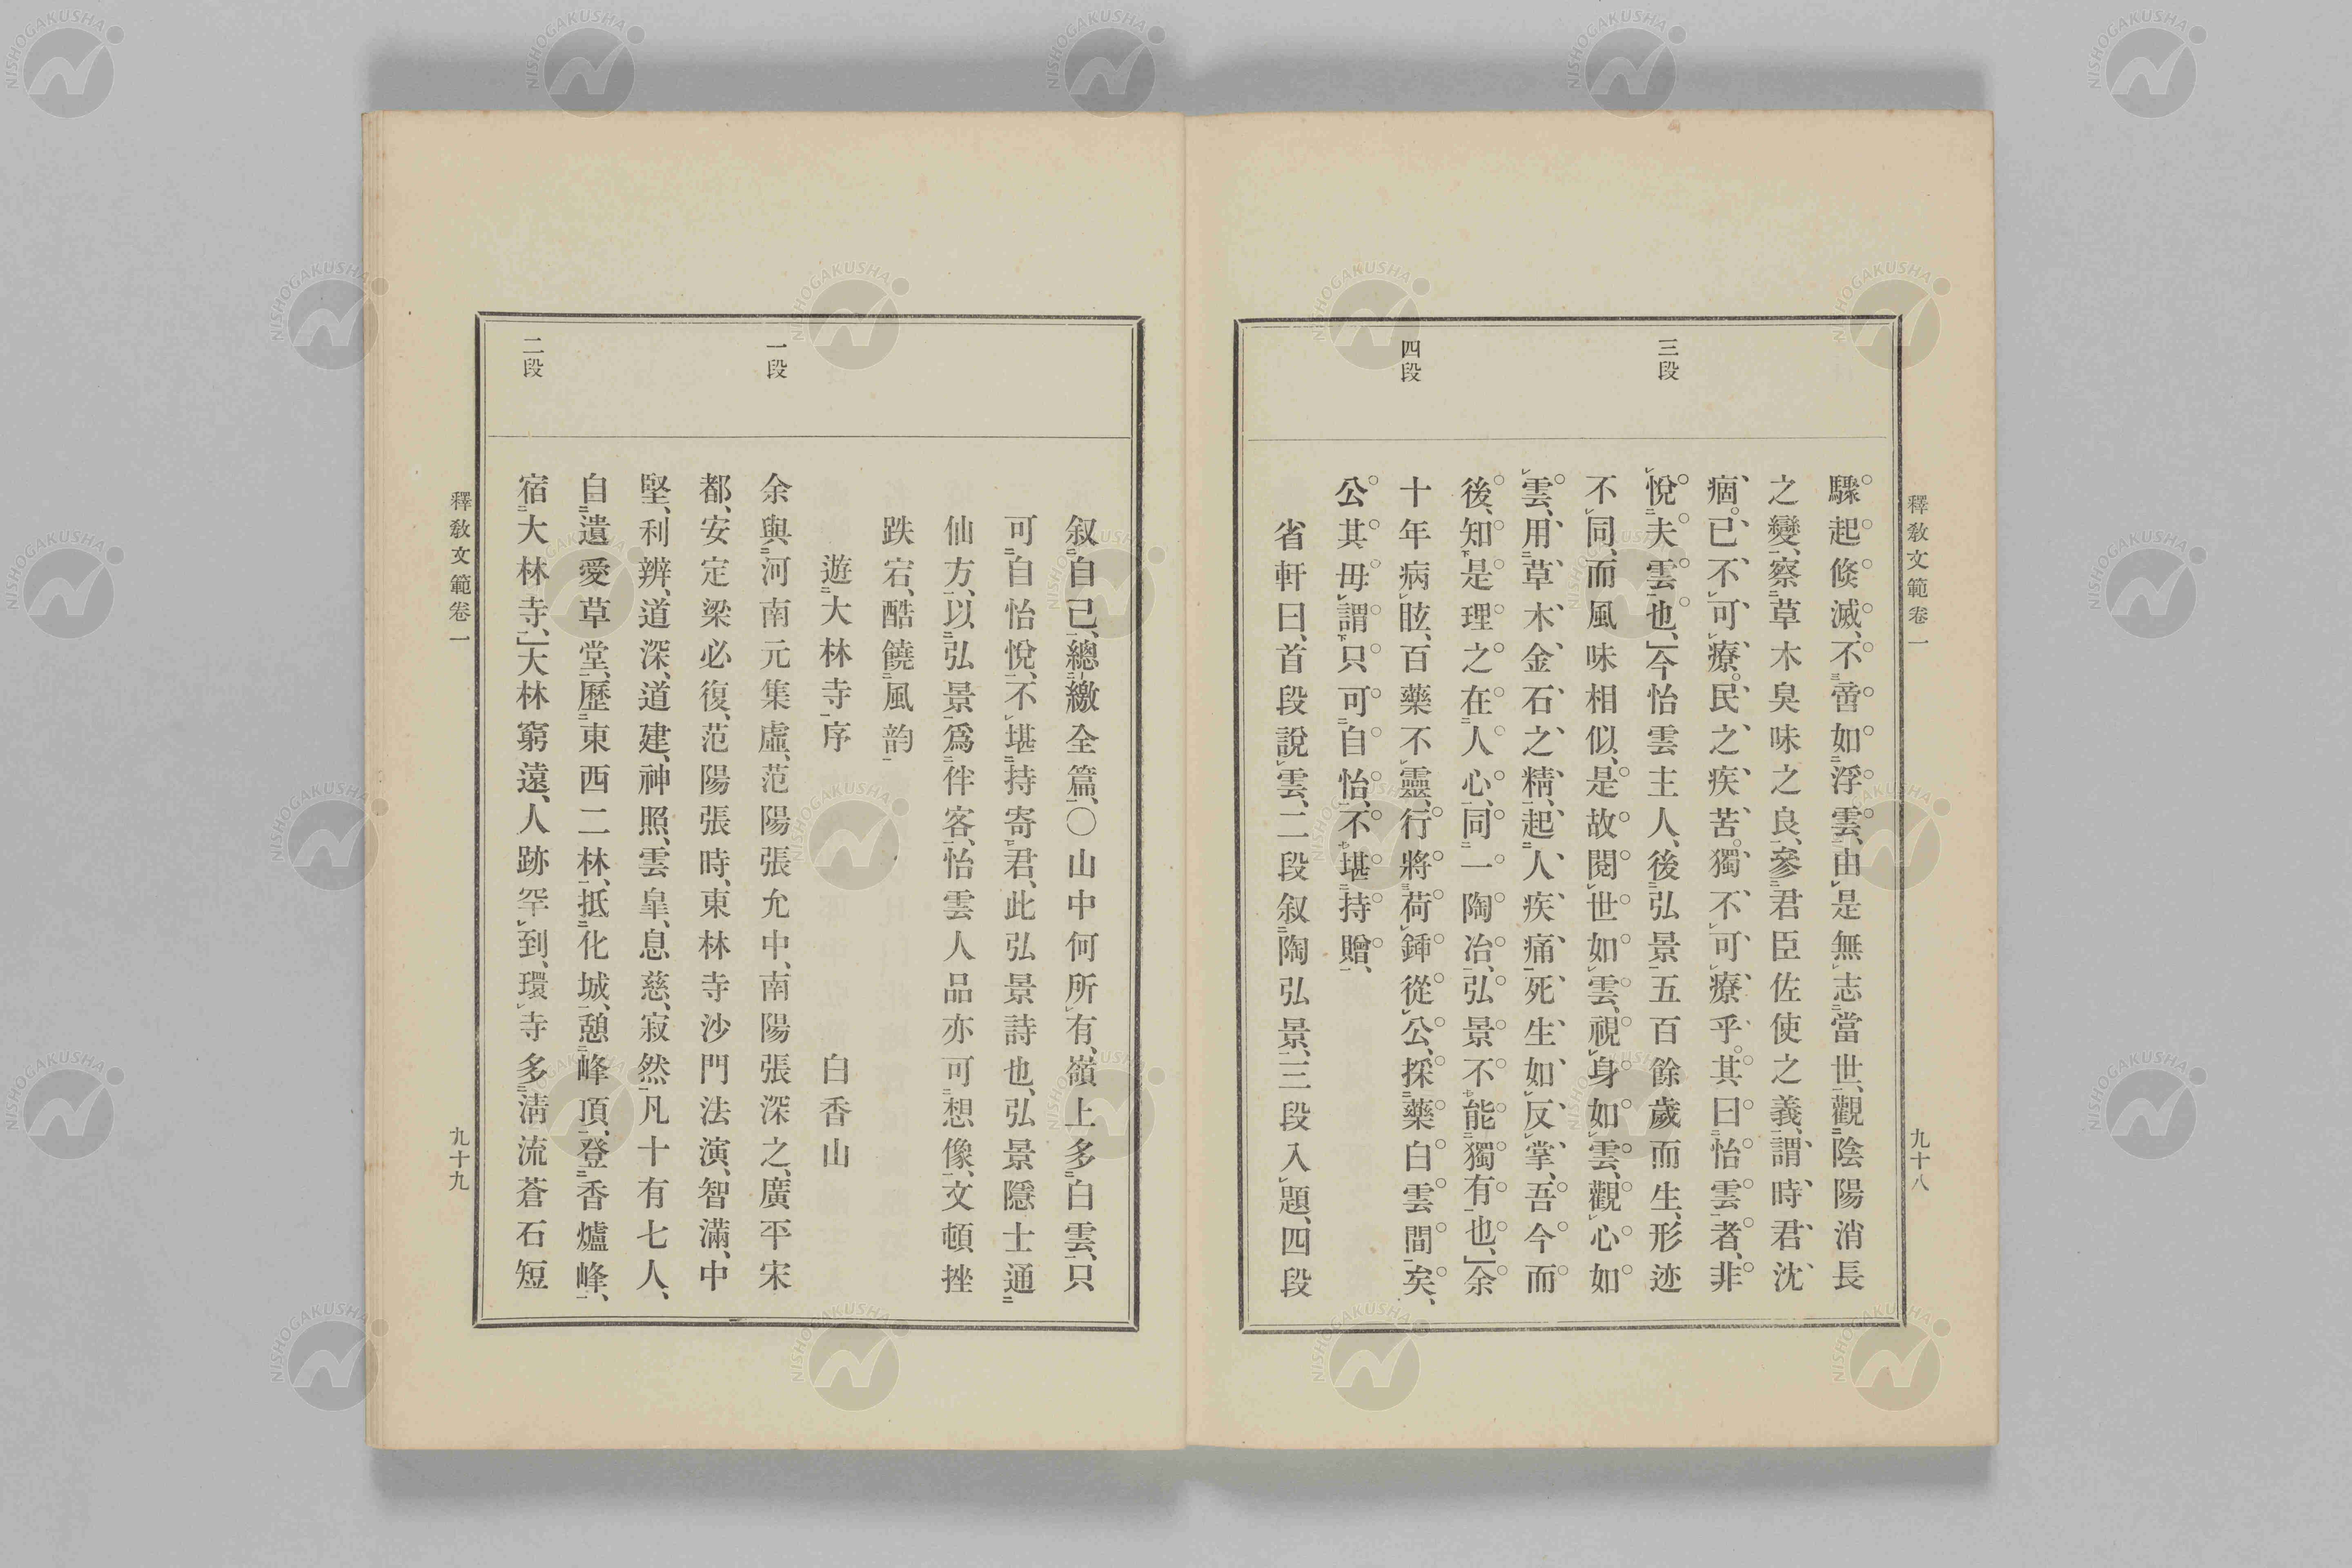 釋敎文範卷一
九十八
三段
四段
驟起倐滅、不啻如浮雲、由是無志當世、觀陰陽消長
之變、察草木臭味之良、參君臣佐使之義、謂時君沈
痼。已不可療。民之疾苦。獨不可療乎。其曰怡雲者、非
悅夫雲也、」今怡雲主人、後弘景五百餘歲而生、形迹
不同、而風味相似、是故閱世如雲、視身如雲、觀心如
雲、用草木金石之精、起人疾痛、死生如反掌、吾今而
後、知是理之在人心、同一陶冶、弘景不能獨有也、」余
十年病眩、百藥不靈、行將荷鍤從公、採藥白雲間矣、
公其毋謂只可自怡、不堪持贈、
省軒曰、首段說雲、二段叙陶弘景、三段入題、四段
一段
二段
叙自己、總繳全篇、○山中何所有、嶺上多白雲、只
可自怡悅、不堪持寄君、此弘景詩也、弘景隱士通
仙方、以弘景爲伴客、怡雲人品亦可想像、文頓挫
跌宕、酷饒風韵
遊大林寺序 白香山
余與河南元集虛、范陽張允中、南陽張深之、廣平宋
都、安定梁必復、范陽張時、東林寺沙門法演、智滿、中
堅、利辨、道深、道建、神照、雲皐、息慈、寂然凡十有七人、
自遺愛草堂、歷東西二林、抵化城、憩峰頂、登香爐峰、
宿大林寺、」大林窮遠、人跡罕到、環寺多淸流蒼石短
釋敎文範卷一
九十九
NISHOGAKUSHA